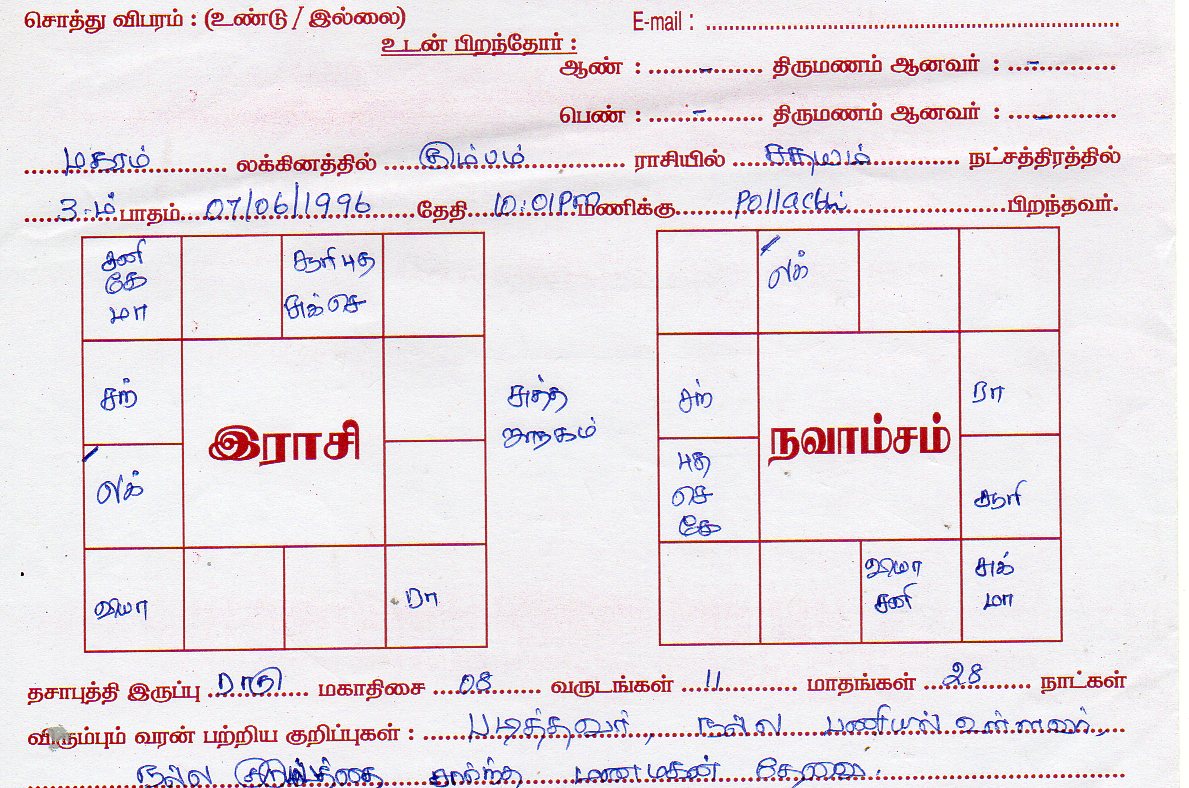 சொத்து விபரம் : (உண்டு / இல்லை) E-mail : ........
உடன் பிறந்தோர் :
ஆண் : ........-........ திருமணம் ஆனவர் : ....-........
பெண் : ........-........ திருமணம் ஆனவர் : ....-........
மகரம் லக்கினத்தில் கும்பம் ராசியில் சதயம் நட்சத்திரத்தில்
3.ம் பாதம் 07/06/1996 தேதி 10:01PM மணிக்கு Pollachi பிறந்தவர்.
சனி
கே
மா
சூரி புத
சுக் செ
சந்
லக்
வியா
ரா
இராசி
சுத்த
ஜாதகம்
லக்
சந்
ரா
புத
செ
கே
சூரி
வியா
சனி
சுக்
மா
நவாம்சம்
தசாபுத்தி இருப்பு ராகு மகாதிசை 08 வருடங்கள் 11 மாதங்கள் 28 நாட்கள்
விரும்பும் வரன் பற்றிய குறிப்புகள் : படித்தவர், நல்ல பணியில் உள்ளவர்,
நல்ல குடும்பத்தை சார்ந்த மணமகன் தேவை.